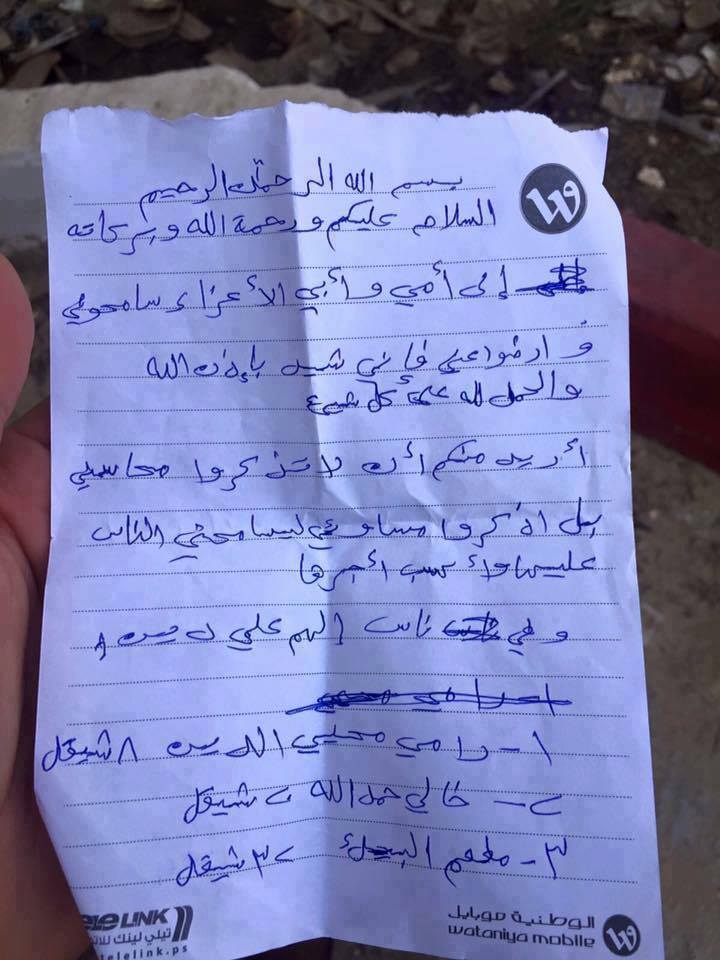 بسم الله الرحمن الرحيم
السلام عليكم ورحمة الله وبركاته
إلى أمي وأبي الأعزاء سامحوني
وارضوا عني فإني شهيد بإذن الله
والحمد لله على كل شيء
أريد منكم أن لا تذكروا محاسني
بل اذكروا مساوئي ليسامحني الناس
عليها وأكسب أجرها
وفي ناس إلهم علي دين
١- رامي محيي الدين ٨ شيقل
٢- خالي حمد الله ٢٠ شيقل
٣- مطعم ٢٣ شيقل
TELE LINK
تيلي لينك للات
telelink.ps
الوطنية موبايل
wataniya mobile